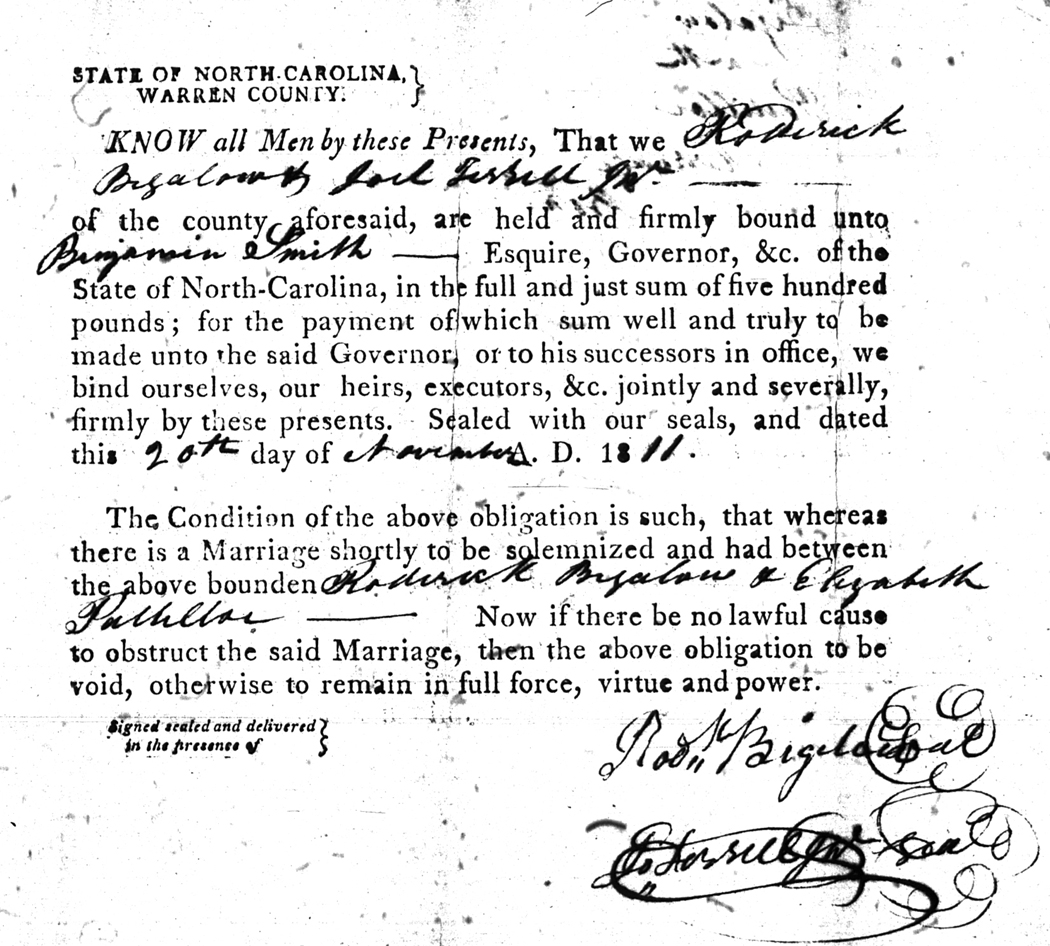 STATE OF NORTH-CAROLINA, }
WARREN COUNTY. }
KNOW all Men by these Presents, That we Roderick
Bigalow & Joel Terrell Jnr. —
of the county aforesaid, are held and firmly bound unto
Benjamin Smith — Esquire, Governor, &c. of the
State of North-Carolina, in the full and just sum of five hundred
pounds; for the payment of which sum well and truly to be
made unto the said Governor, or to his successors in office, we
bind ourselves, our heirs, executors, &c. jointly and severally,
firmly by these presents. Sealed with our seals, and dated
this 20th day of November A. D. 1811.
The Condition of the above obligation is such, that whereas
there is a Marriage shortly to be solemnized and had between
the above bounden Roderick Bigalow & Elizabeth
Pattillo — Now if there be no lawful cause
to obstruct the said Marriage, then the above obligation to be
void, otherwise to remain in full force, virtue and power.
Signed sealed and delivered }
in the presence of }
Rodk Bigelow Seal
Jo Terrell Jnr Seal